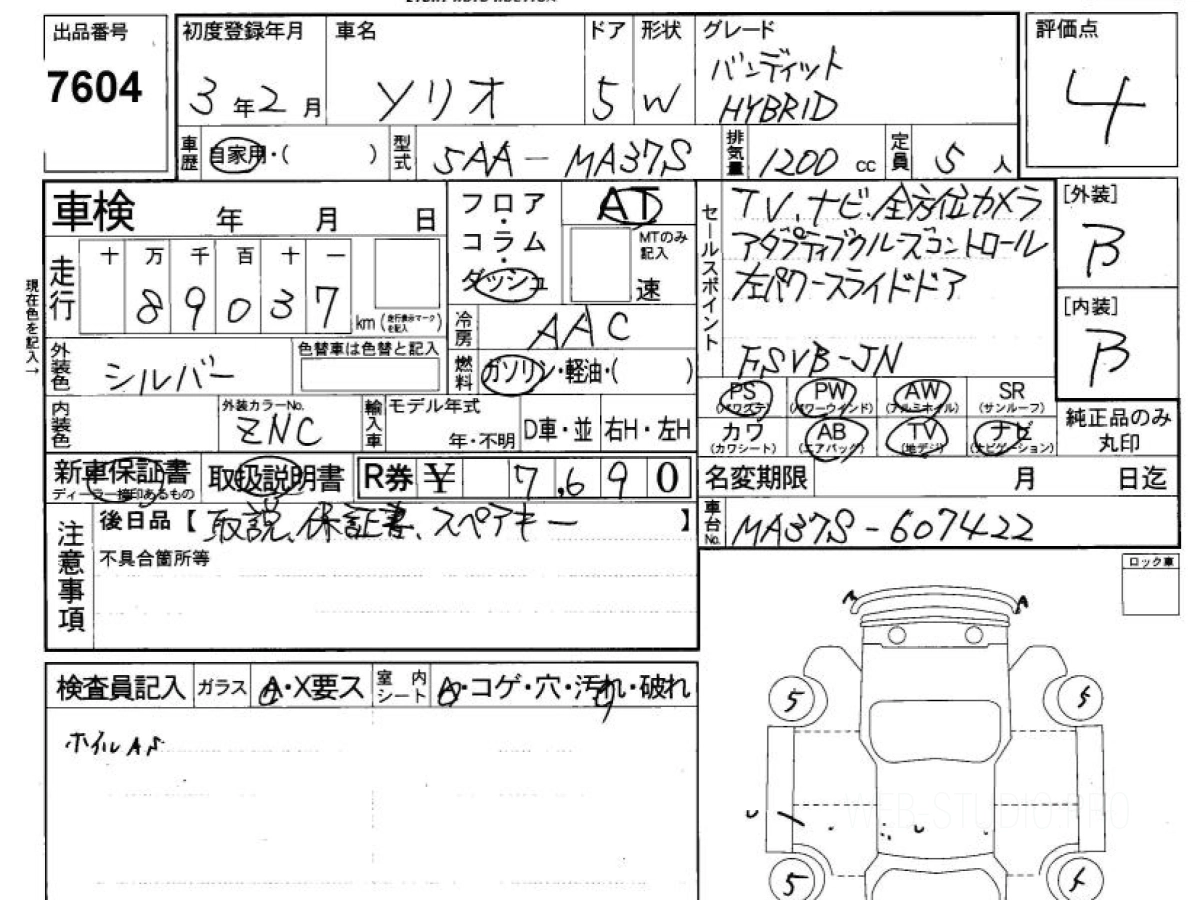 出品番号
7604
初度登録年月
3年2月
車名
ソリオ
ドア
5
形状
W
グレード
バンディット
HYBRID
評価点
4
車歴
自家用・( )
型式
5AA-MA37S
排気量
1200 cc
定員
5 人
車検 年 月 日
走行
十 万 千 百 十 一
89037 km (走行表示マークを記入)
現在色を記入→
外装色
シルバー
色替車は色替と記入
内装色
外装カラーNo.
ZNC
輸入車
モデル年式
年・不明
D車・並
右H・左H
フロア
・
コラム
・
ダッシュ
AT
MTのみ記入
速
冷房
AAC
燃料
ガソリン・軽油・( )
セールスポイント
TV、ナビ、全方位カメラ
アダプティブクルーズコントロール
左パワースライドドア
FSVB-JN
[外装]
B
[内装]
B
PS (パワステ)
PW (パワーウインド)
AW (アルミホイル)
SR (サンルーフ)
カワ (カワシート)
AB (エアバック)
TV (地デジ)
ナビ (ナビゲーション)
純正品のみ
丸印
新車保証書
ディーラー捺印あるもの
取扱説明書
R券 ¥ 7,690
名変期限 月 日迄
車台No.
MA37S-607422
注意事項
後日品【取説、保証書、スペアキー】
不具合箇所等
ロック車
検査員記入
ガラス
A・X要ス
室内シート
A・コゲ・穴・汚れ・破れ
ホイルAS
A
5
5
5
4
WEB-STUDIO.PRO